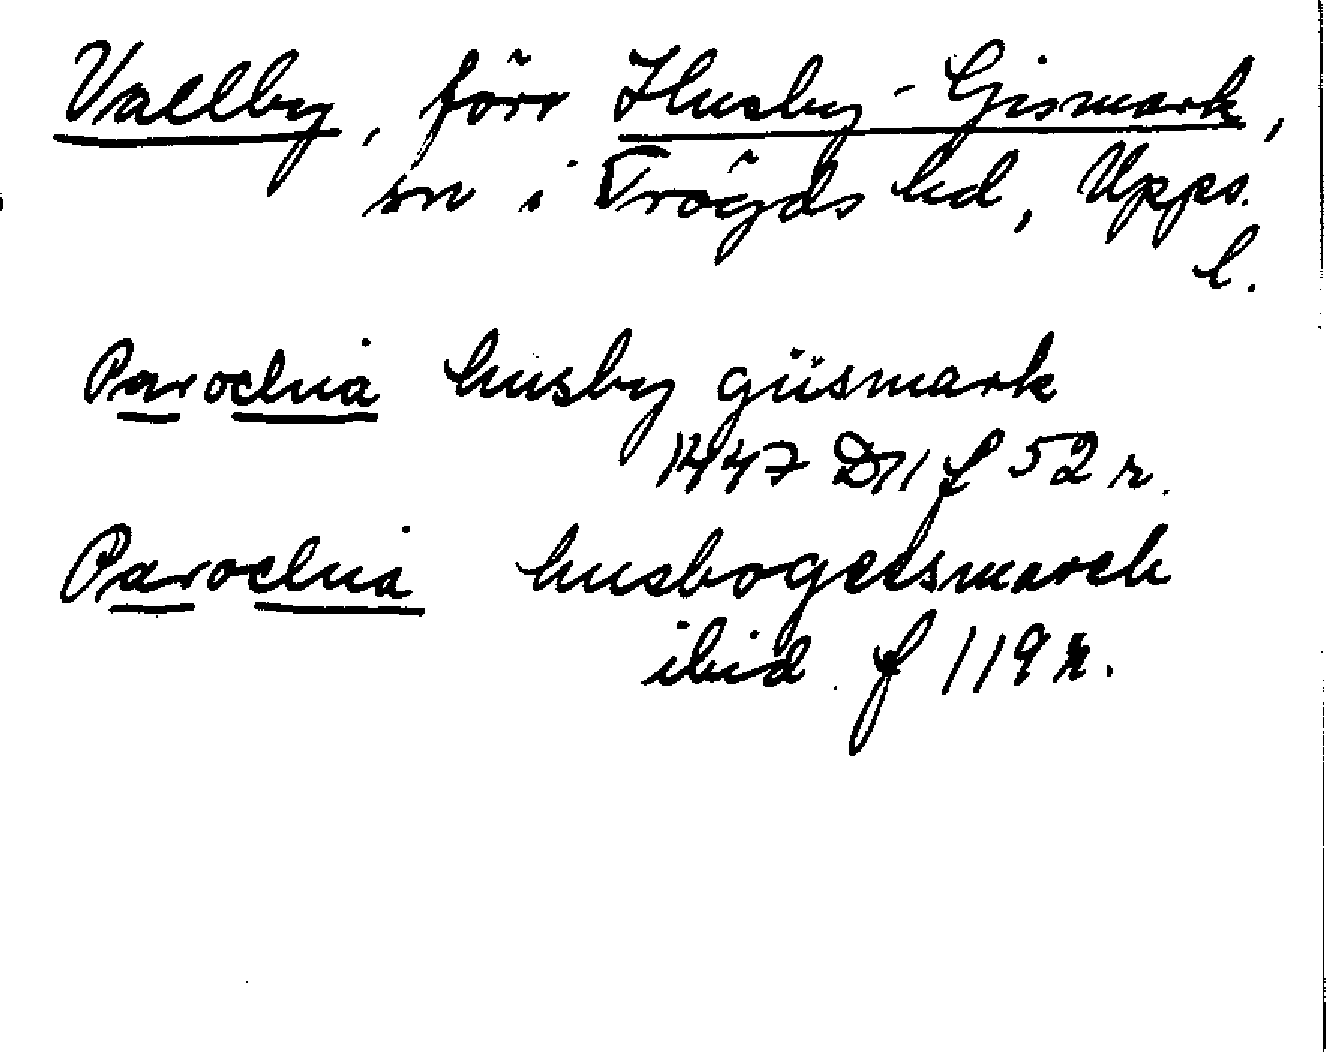 Vallby, förr Husby-Gismark,
sn i Trögds hd, Upps.
l.
Parochia husby giismark
1447 D11 f 52 r.
Parochia husbogeesmarch
ibid f 119 r.